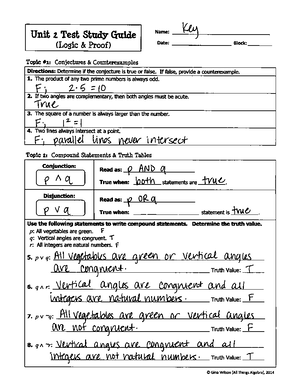 Unit 2 Test Study Guide
(Logic & Proof)
Name: Key
Date: Block:
Topic #1: Conjectures & Counterexamples
Directions: Determine if the conjecture is true or false. If false, provide a counterexample.
1. The product of any two prime numbers is always odd.
F; 2·5 = 10
2. If two angles are complementary, then both angles must be acute.
True
3. The square of a number is always larger than the number.
F; 1² = 1
4. Two lines always intersect at a point.
F; parallel lines never intersect
Topic 2: Compound Statements & Truth Tables
Conjunction:
p ∧ q
Read as: p AND q
True when: both statements are true
Disjunction:
p ∨ q
Read as: p OR q
True when: statement is true
Use the following statements to write compound statements. Determine the truth value.
p: All vegetables are green. F
q: Vertical angles are congruent. T
r: All integers are natural numbers. F
5. p ∨ q: All vegetables are green or vertical angles
are congruent. Truth Value: T
6. q ∧ r: Vertical angles are congruent and all
integers are natural numbers. Truth Value: F
All vegetables are green or vertical angles
are not congruent. Truth Value: F
Vertical angles are congruent and all
integers are not natural numbers. Truth Value: T
© Gina Wilson (All Things Algebra), 2014